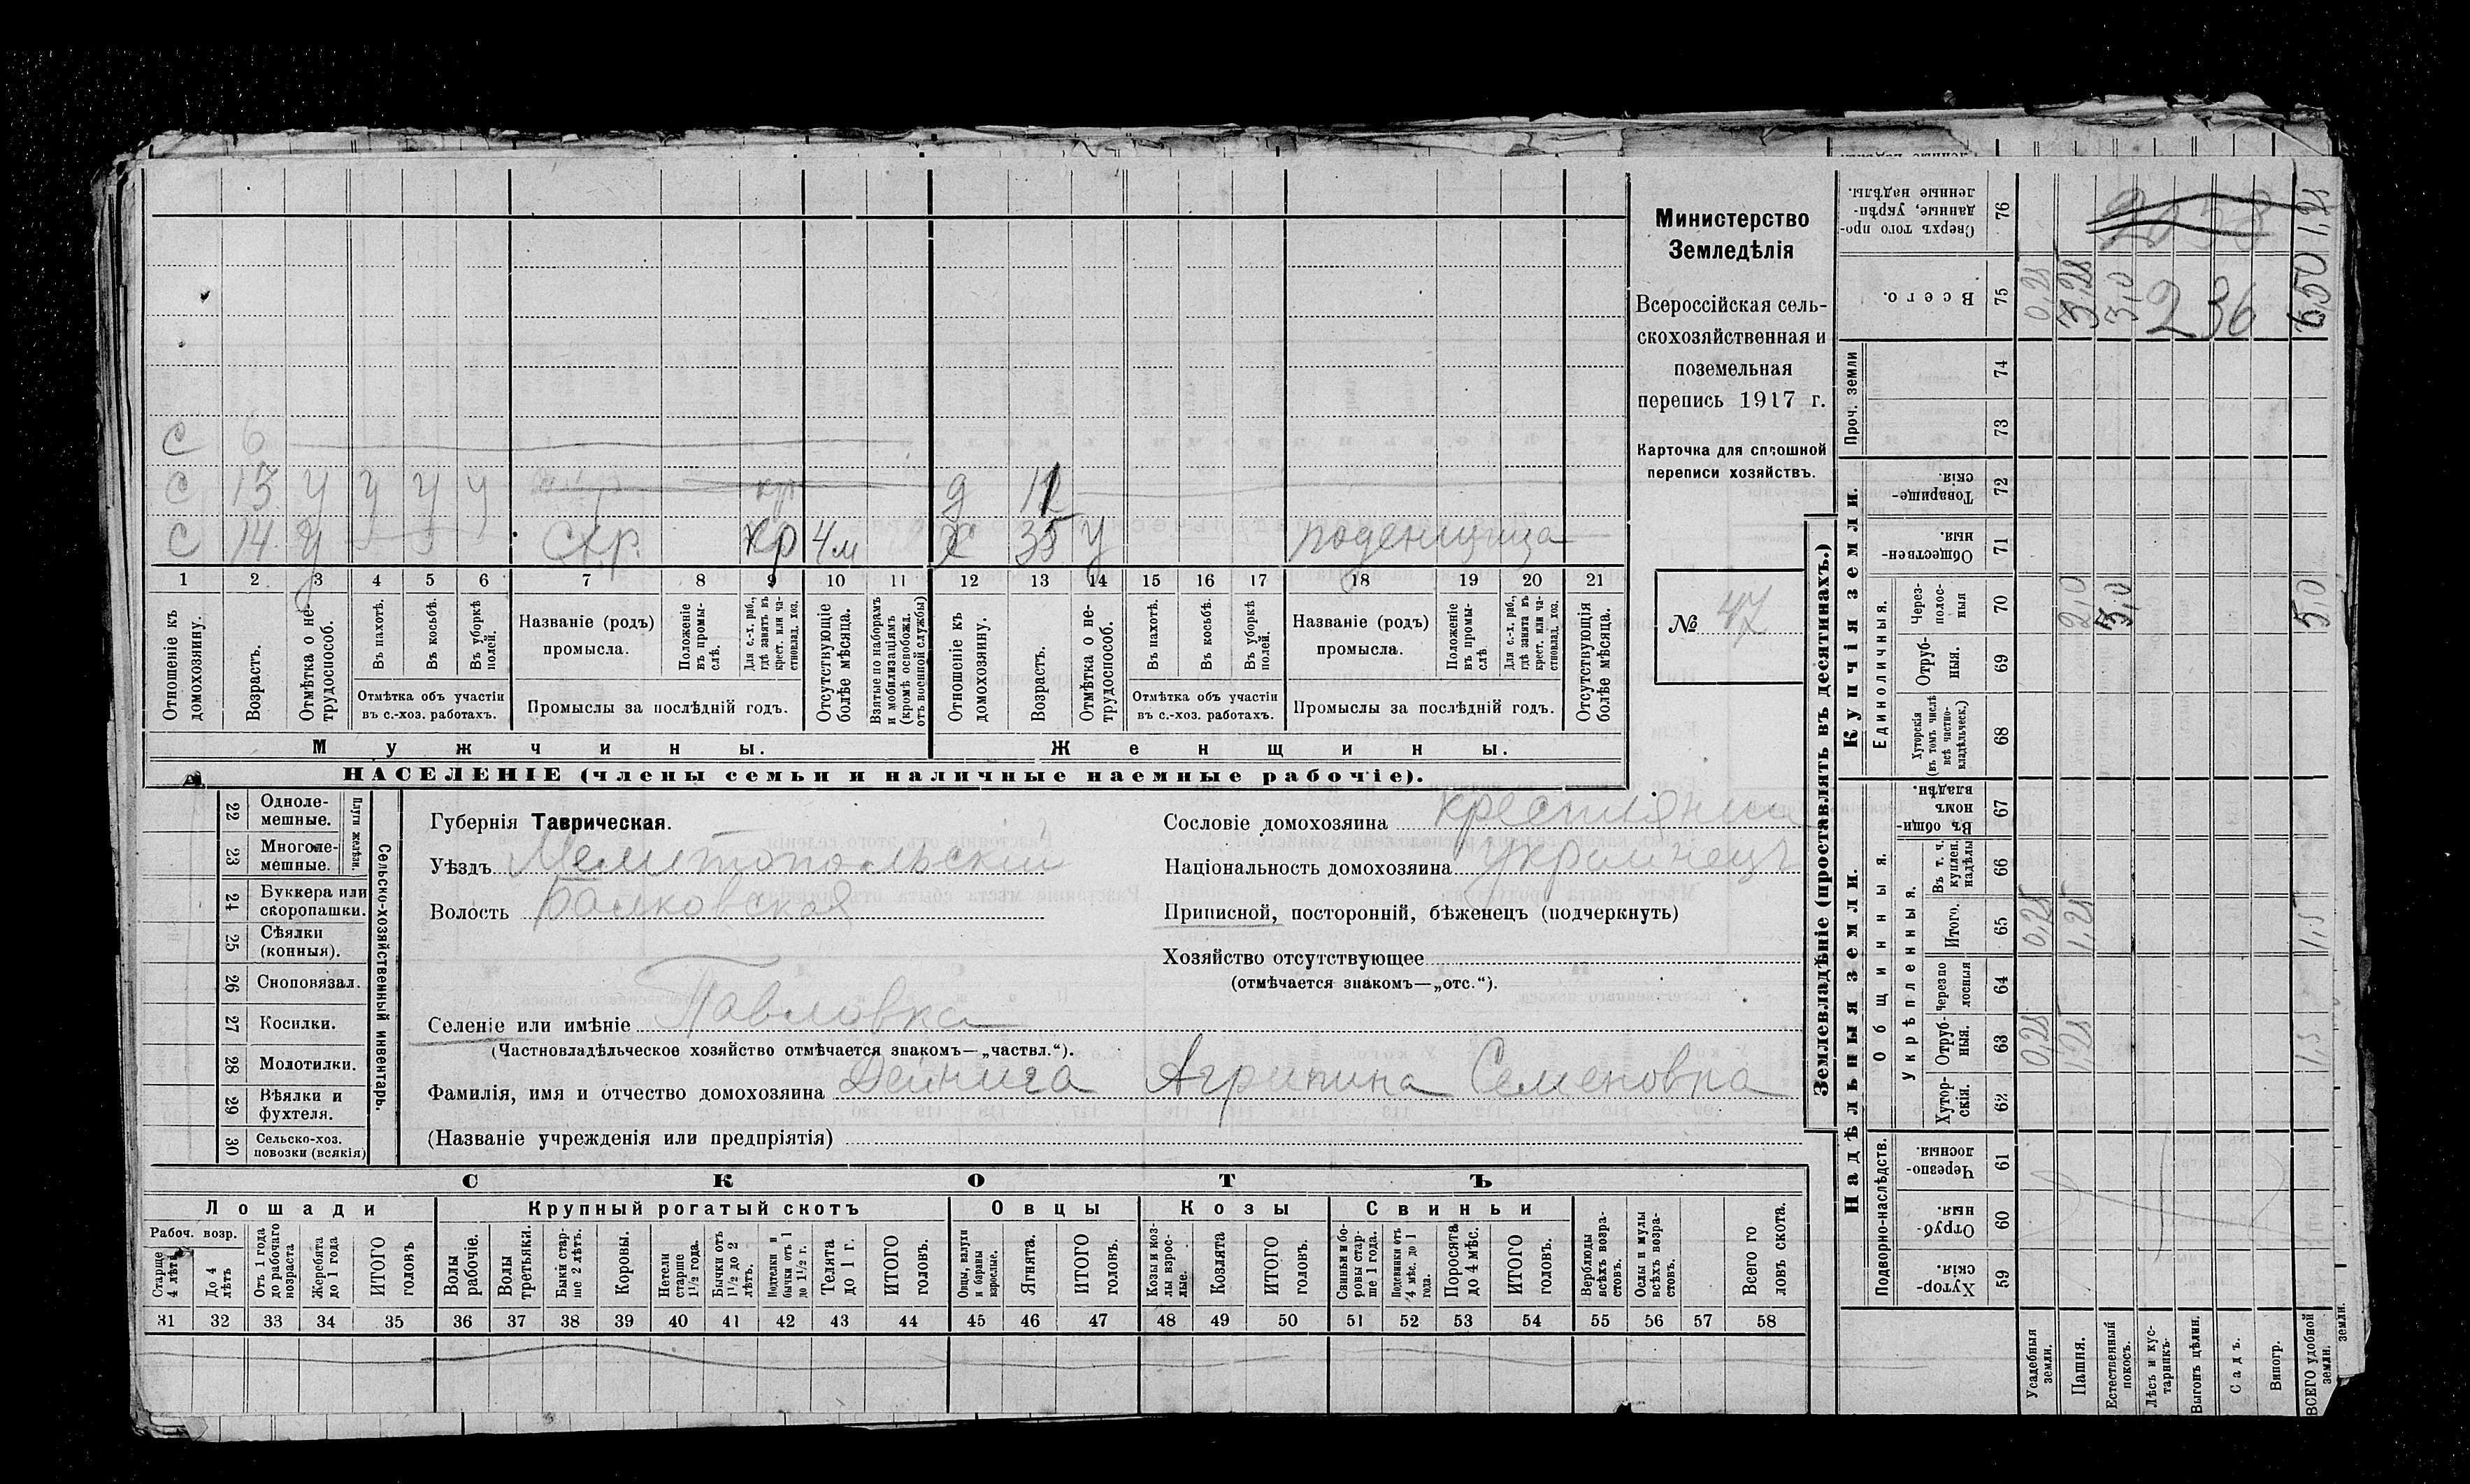 С 6
С 13 У У У У кр Д 12
С 14 У схр. хр 4м Х 35 У поденщица
1 2 3 4 5 6 7 8 9 10 11 12 13 14 15 16 17 18 19 20 21
Отношеніе къ домохозяину.
Возрастъ.
Отмѣтка о не-трудоспособ.
Въ пахотѣ.
Въ косьбѣ.
Въ уборкѣ полей.
Отмѣтка объ участіи въ с.-хоз. работахъ.
Названіе (родъ) промысла.
Положеніе въ промы-слѣ.
Для с.-х. раб., гдѣ занятъ въ крест. или ча-стновлад. хоз.
Промыслы за послѣдній годъ.
Отсутствующіе болѣе мѣсяца.
Взятые по наборамъ и мобилизаціямъ (кромѣ освобожд. отъ военной службы)
Отношеніе къ домохозяину.
Возрастъ.
Отмѣтка о не-трудоспособ.
Въ пахотѣ.
Въ косьбѣ.
Въ уборкѣ полей.
Отмѣтка объ участіи въ с.-хоз. работахъ.
Названіе (родъ) промысла.
Положеніе въ промы-слѣ
Для с.-х. раб., гдѣ занята въ крест. или ча-стновлад. хоз.
Промыслы за послѣдній годъ.
Отсутствующія болѣе мѣсяца.
Мужчины. Женщины.
НАСЕЛЕНІЕ (члены семьи и наличные наемные рабочіе).
Министерство
Земледѣлія
Всероссійская сель-
скохозяйственная и
поземельная
перепись 1917 г.
Карточка для сплошной
переписи хозяйствъ.
№ 47
22 Одноле-мешные.
23 Многоле-мешные.
Плуги желѣзн.
24 Буккера или скоропашки.
25 Сѣялки (конныя).
26 Сноповязал.
27 Косилки.
28 Молотилки.
29 Вѣялки и фухтеля.
30 Сельско-хоз. повозки (всякія)
Сельско-хозяйственный инвентарь.
Губернія Таврическая.
Уѣздъ Мелитопольскій
Волость Балковская
Селеніе или имѣніе Павловка
(Частновладѣльческое хозяйство отмѣчается знакомъ—„частвл.“).
Сословіе домохозяина крестьянин
Національность домохозяина украинецъ
Приписной, посторонній, бѣженецъ (подчеркнуть)
Хозяйство отсутствующее
(отмѣчается знакомъ—„отс.“).
Фамилія, имя и отчество домохозяина Дейнига Агрипина Семеновна
(Названіе учрежденія или предпріятія)
СКОТЪ
Лошади Крупный рогатый скотъ Овцы Козы Свиньи
Рабоч. возр.
Старше 4 лѣтъ
До 4 лѣтъ
Отъ 1 года до рабочаго возраста
Жеребята до 1 года
ИТОГО головъ
Волы рабочіе.
Волы третьяки.
Быки стар-ше 2 лѣтъ.
Коровы.
Нетели старше 1½ года.
Бычки отъ 1½ до 2 лѣтъ.
Подтелки и бычки отъ 1 до 1½ г.
Телята до 1 г.
ИТОГО головъ.
Овцы, валухи и бараны взрослые.
Ягнята.
ИТОГО головъ.
Козы и коз-лы взрос-лые.
Козлята
ИТОГО головъ.
Свиньи и бо-ровы стар-ше 1 года.
Подсвинки отъ 4 мѣс. до 1 года.
Поросята до 4 мѣс.
ИТОГО головъ.
Верблюды всѣхъ возра-стовъ.
Ослы и мулы всѣхъ возра-стовъ.
Всего го ловъ скота.
31 32 33 34 35 36 37 38 39 40 41 42 43 44 45 46 47 48 49 50 51 52 53 54 55 56 57 58
Землевладѣніе (проставлять въ десятинахъ.)
Сверхъ того про-данные, укрѣп-ленные надѣлы. 76 2053 1,21
Всего. 75 0,25 3,25 3,0 6,50
236
Проч. земли
74
73
Купчія земли.
Товарище-скія 72
Обществен-ныя. 71
Единоличныя.
Через-полос-ныя 70 2,0 3,0 5,0
Отруб-ныя. 69
Хуторскія (въ томъ числѣ всѣ частно-владѣльческ.) 68
Надѣльныя земли.
Общинныя.
Въ общи-номъ владѣн. 67
Укрѣпленныя.
Въ т. ч. куплен. надѣлы 66
Итого. 65 0,25 1,25 1,5
Черезпо лосныя 64
Отруб-ныя. 63 0,25 1,25 1,5
Хутор-скія. 62
Подворно-наслѣдств.
Черезпо-лосныя. 61
Отруб-ныя. 60
Хутор-скія. 59
Усадебныя земли.
Пашня.
Естественный покосъ.
Лѣсъ и кус-тарникъ.
Выгонъ цѣлин.
Садъ.
Виногр.
ВСЕГО удобной земли.
земли.